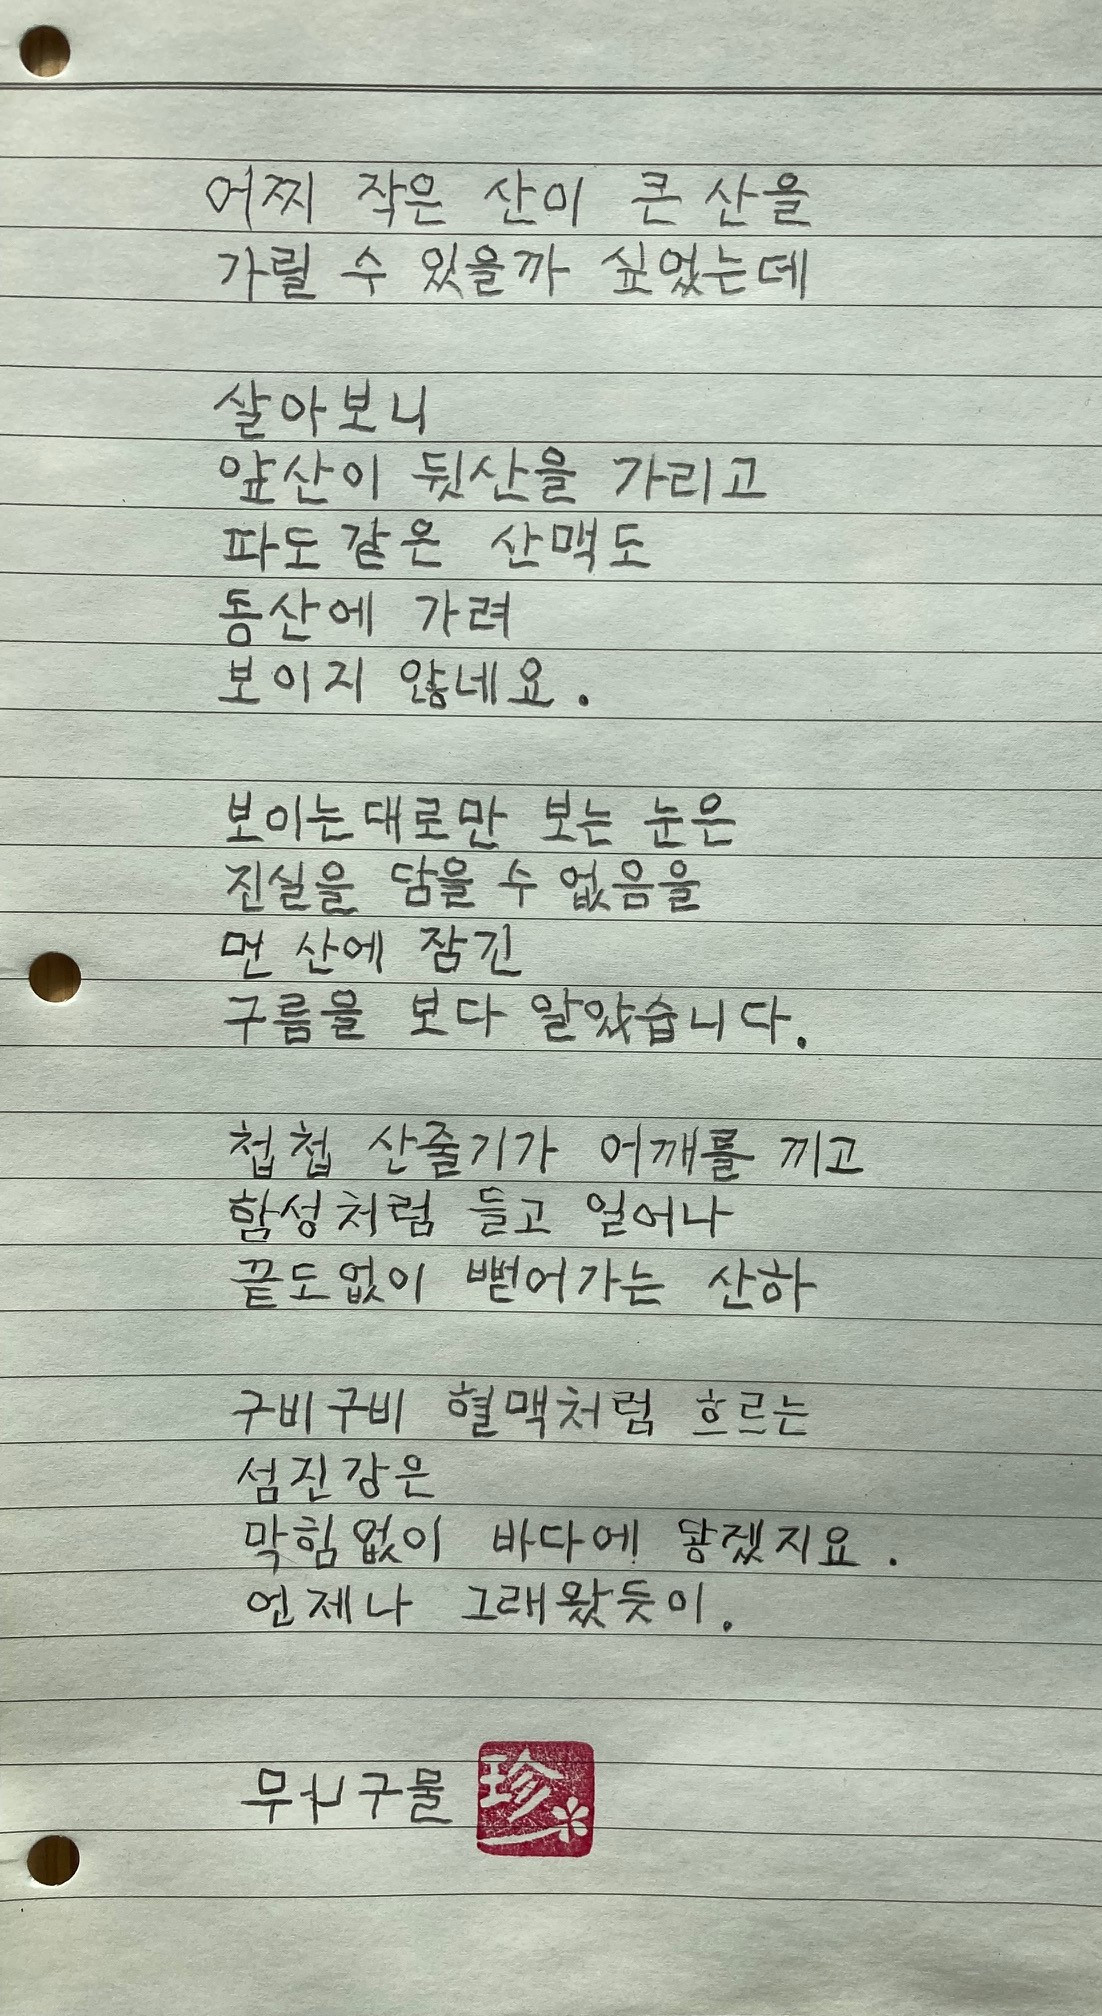 어찌 작은 산이 큰 산을
가릴 수 있을까 싶었는데
살아보니
앞산이 뒷산을 가리고
파도같은 산맥도
동산에 가려
보이지 않네요.
보이는대로만 보는 눈은
진실을 담을 수 없음을
먼 산에 잠긴
구름을 보다 알았습니다.
첩첩 산줄기가 어깨를 끼고
함성처럼 들고 일어나
끝도없이 뻗어가는 산하
구비구비 혈맥처럼 흐르는
섬진강은
막힘없이 바다에 닿겠지요.
언제나 그래왔듯이.
珍